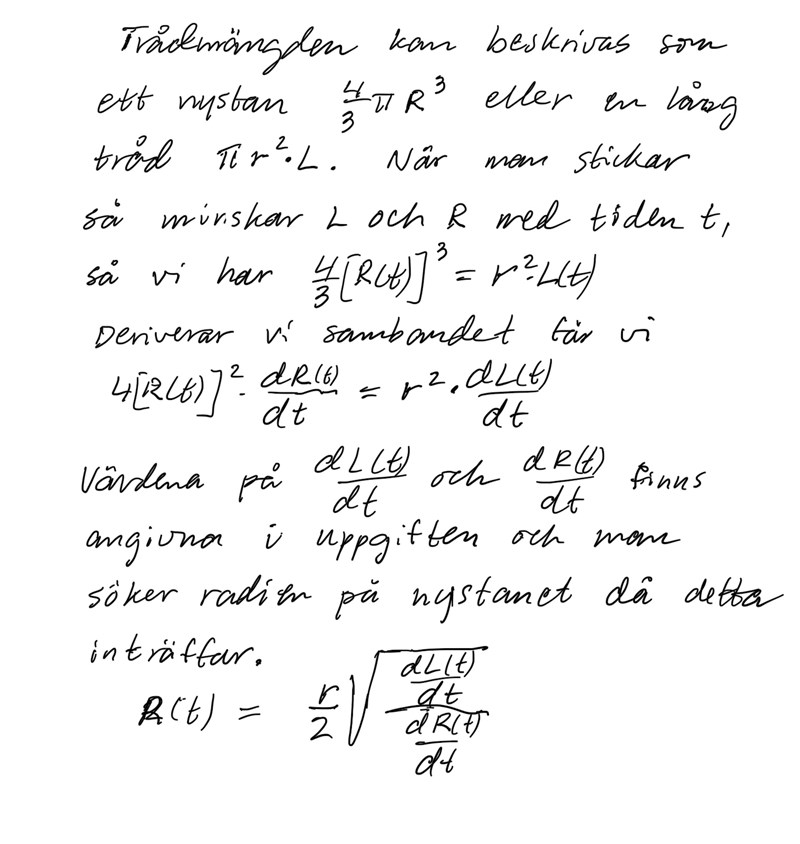 Trådmängden kan beskrivas som
ett nystan 4/3 π R³ eller en lång
tråd π r²·L. När man stickar
så minskar L och R med tiden t,
så vi har 4/3 [R(t)]³ = r²·L(t)
Deriverar vi sambandet får vi
4[R(t)]² · dR(t)/dt = r² · dL(t)/dt
Värdena på dL(t)/dt och dR(t)/dt finns
angivna i uppgiften och man
söker radien på nystanet då detta
inträffar.
R(t) = r/2 √((dL(t)/dt)/(dR(t)/dt))